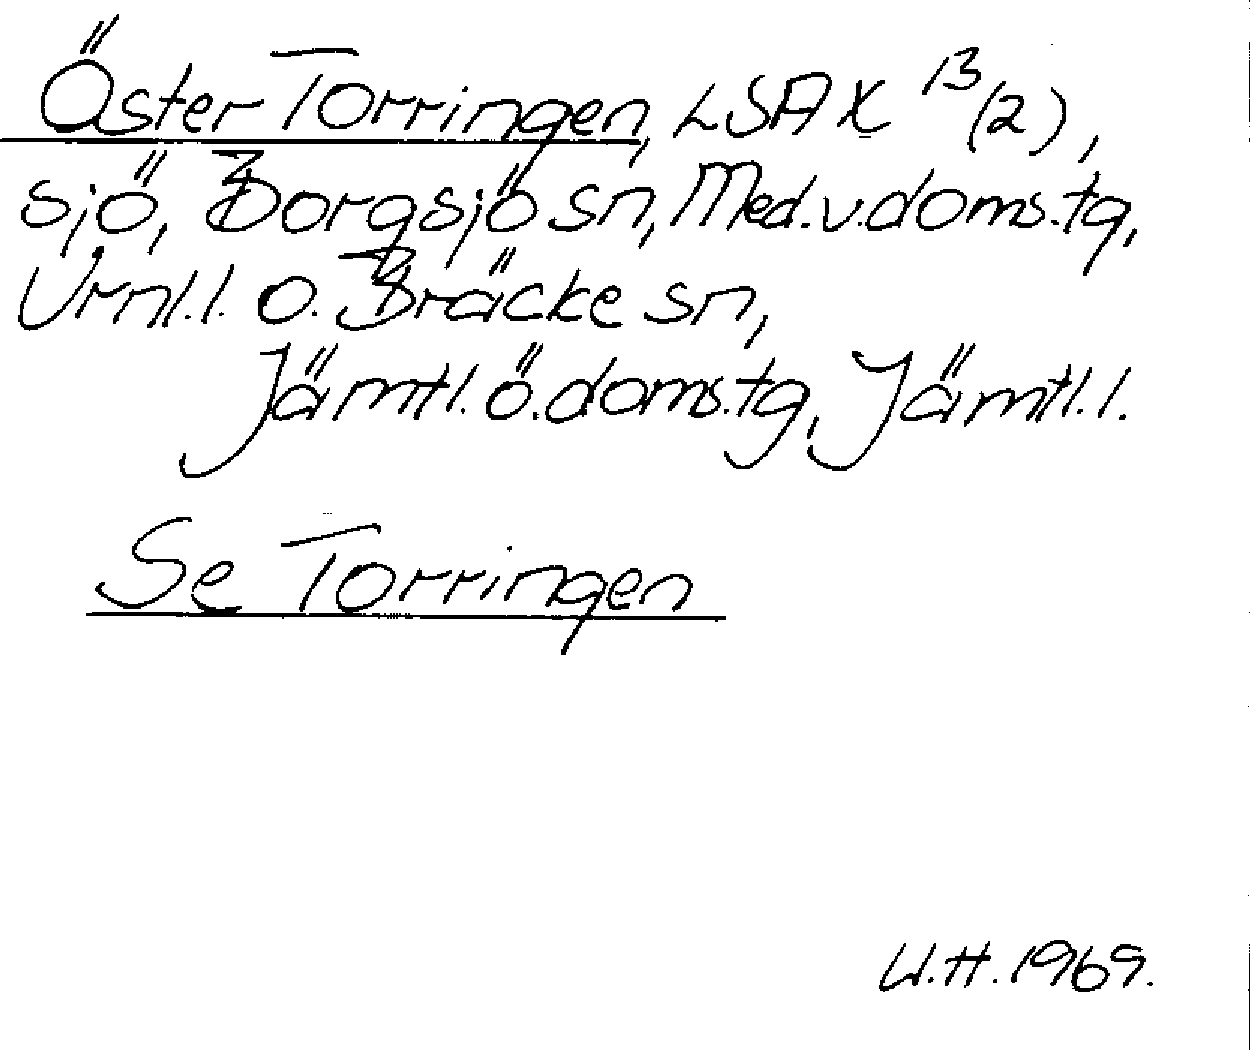 Öster Torringen, LSA X 13(2),
sjö, Borgsjö sn, Med.v.doms.tg,
Vrnl.l. o. Bräcke sn,
Jämtl.ö.doms.tg, Jämtl.l.
Se Torringen
U.H.1969.